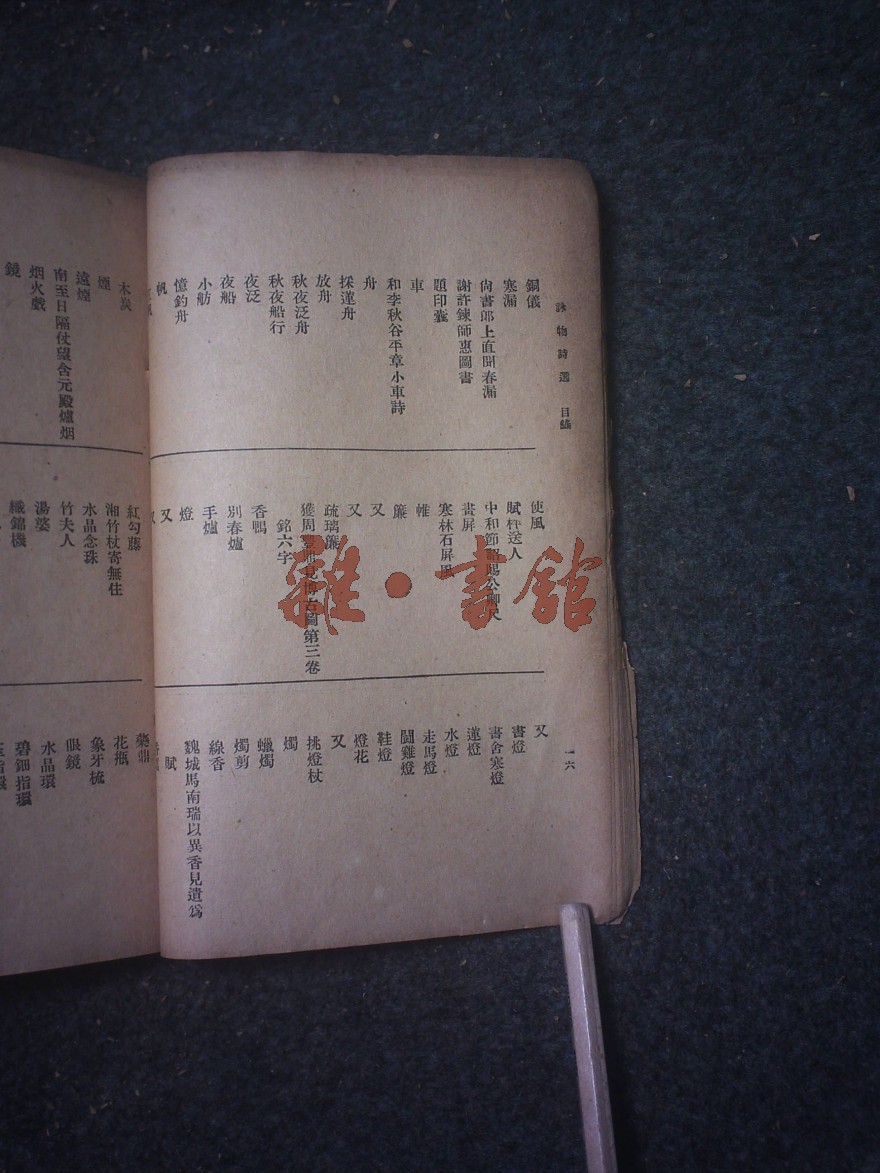 詠物詩選 目錄
一六
銅儀
寒漏
尙書郎上直聞春漏
謝許鍊師惠圖書
題印囊
車
和李秋谷平章小車詩
舟
採蓮舟
放舟
秋夜泛舟
秋夜船行
夜泛
夜船
小舫
憶釣舟
帆
使風
賦枰送人
中和節詔賜公卿尺
畫屏
寒林石屏風
帷
簾
又
又
疏璃簾
獲周
見博古圖第三卷
銘六字
香鴨
別春爐
手爐
燈
又
又
書燈
書舍寒燈
蓮燈
水燈
走馬燈
鬪雞燈
鞋燈
燈花
又
挑燈杖
燭
蠟燭
燭剪
線香
魏城馬南瑞以異香見遺爲
賦
木炭
煙
遠煙
南至日隔仗望含元殿爐烟
烟火戲
鏡
紅勾藤
湘竹杖寄無住
水晶念珠
竹夫人
湯婆
織錦機
藥鼎
花瓶
象牙梳
眼鏡
水晶環
碧鈿指環
雜·書館